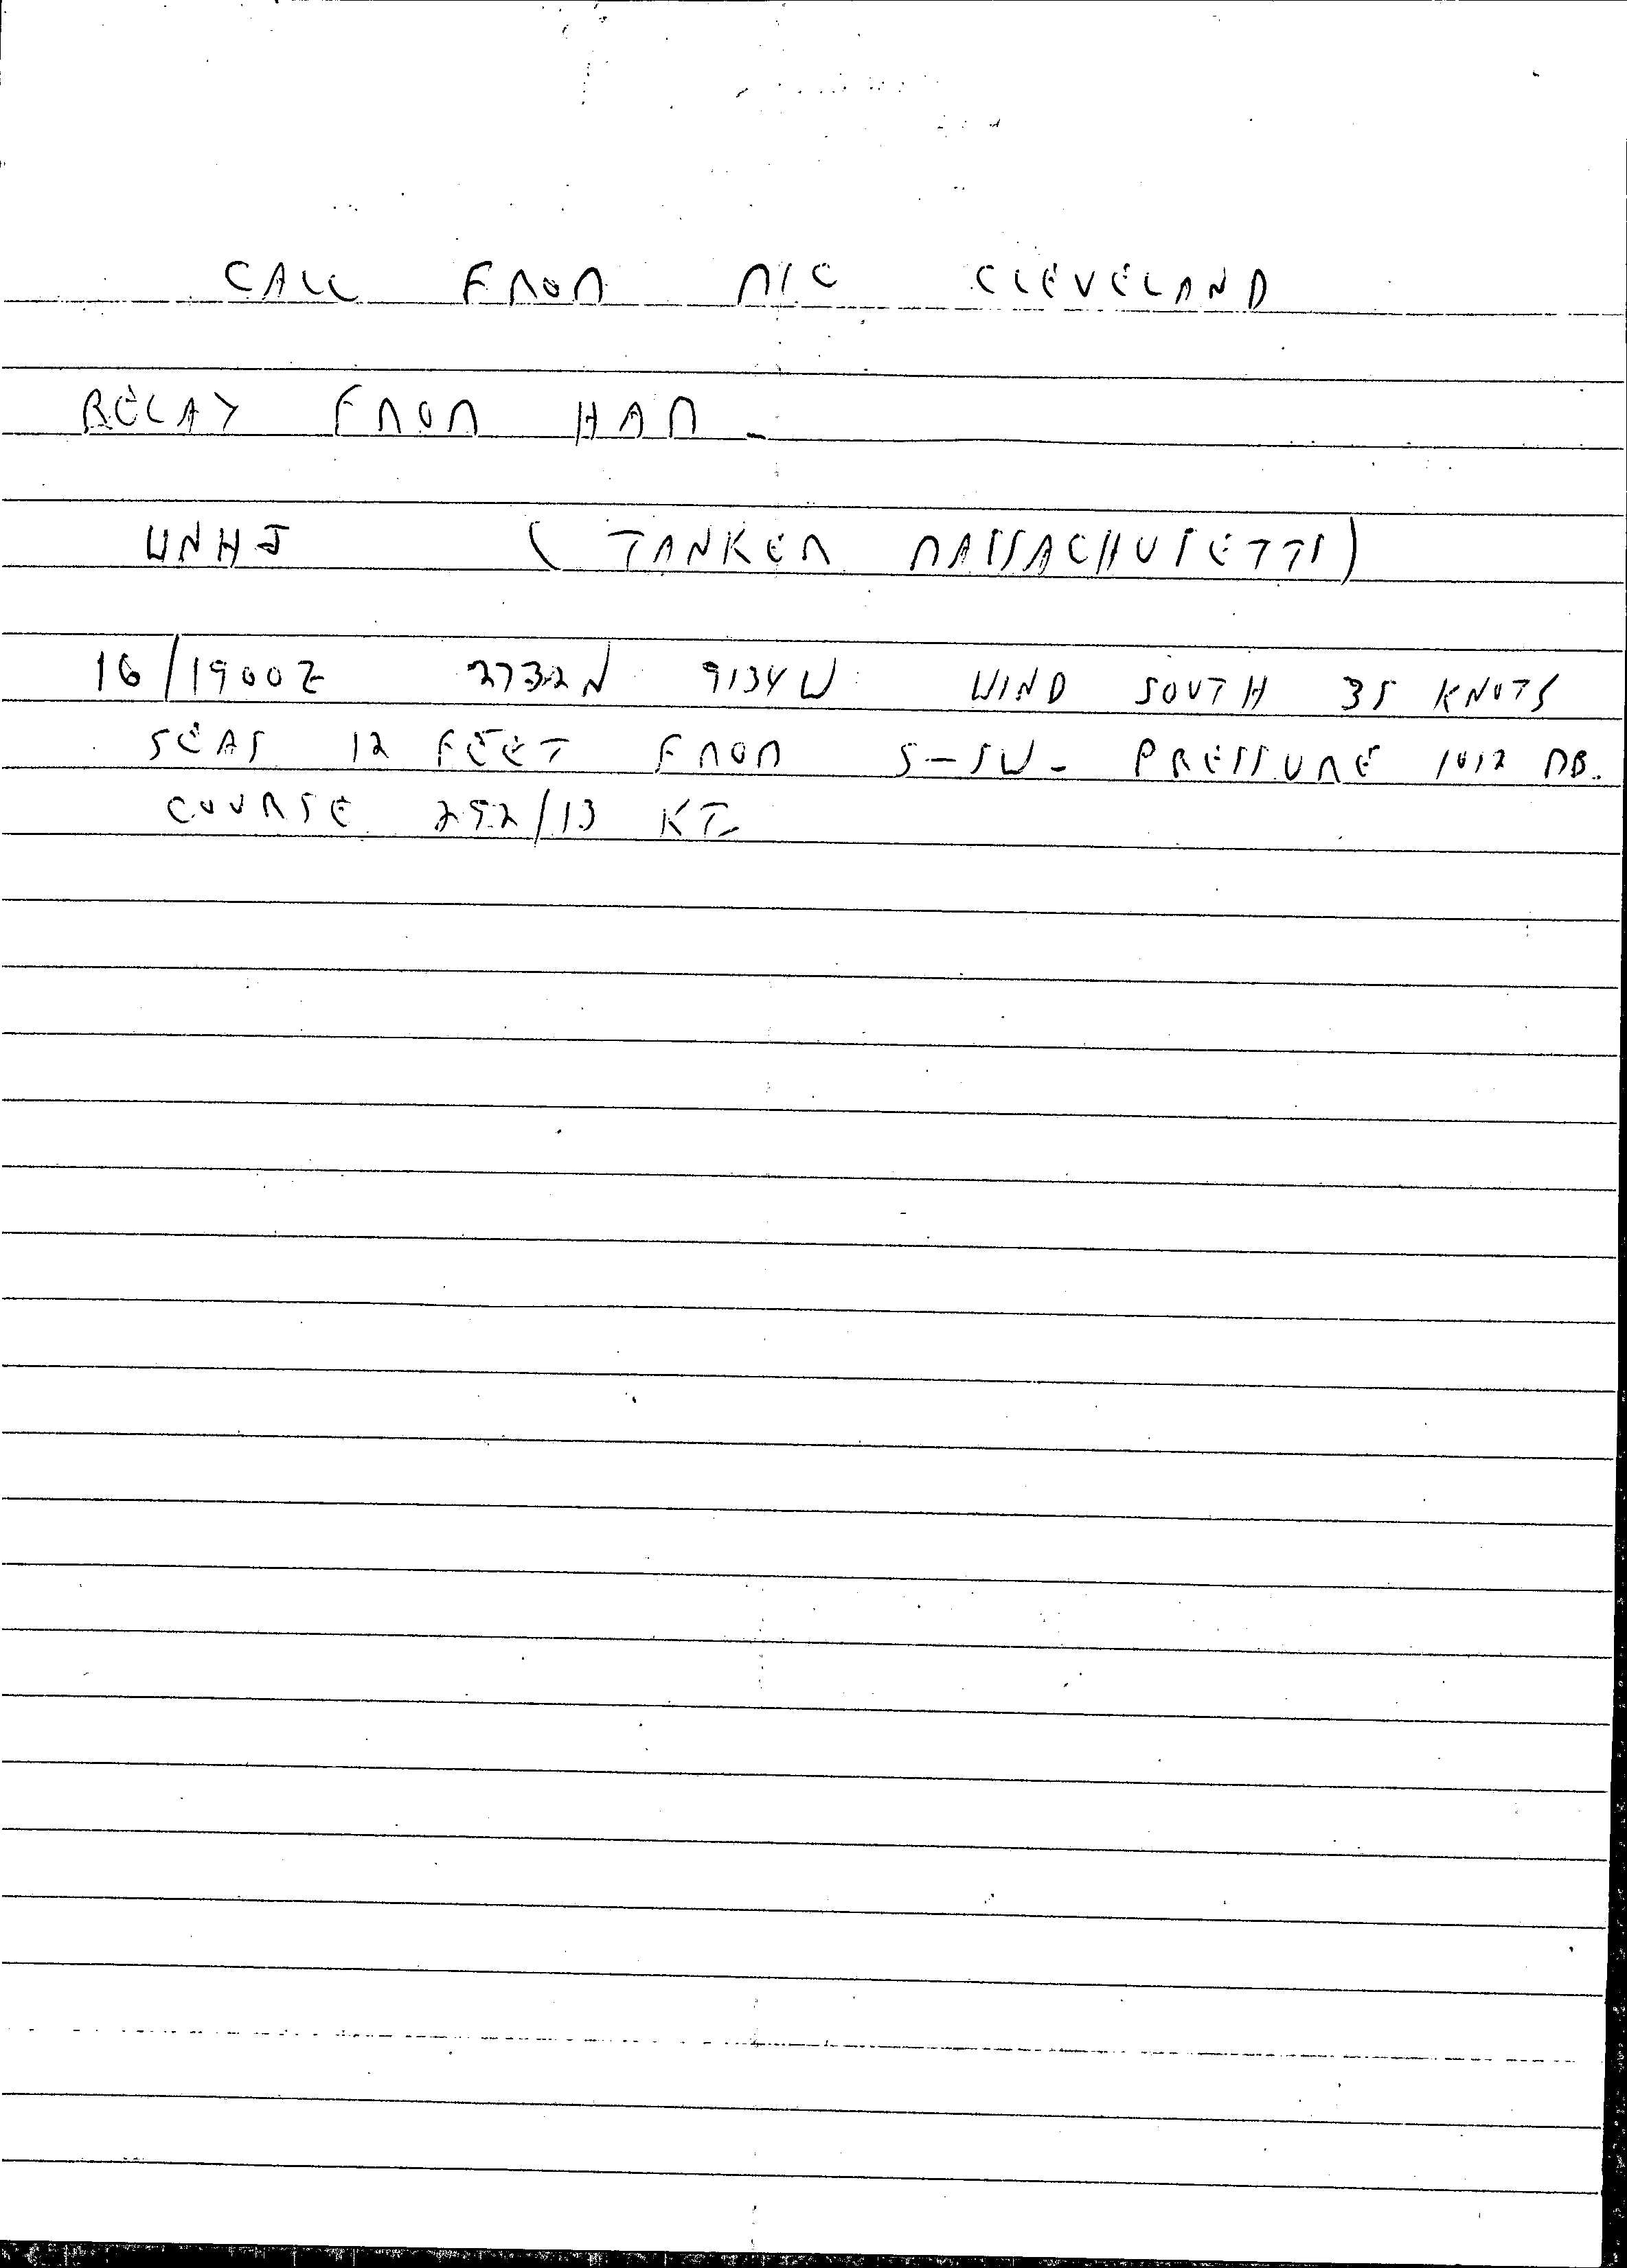 CALL FROM MIC CLEVELAND
RELAY FROM HAM -
WNHJ (TANKER MASSACHUSETTS)
16/1900Z 2732N 9134W WIND SOUTH 35 KNOTS
SEAS 12 FEET FROM S-SW - PRESSURE 1012 MB.
COURSE 292/13 KT-